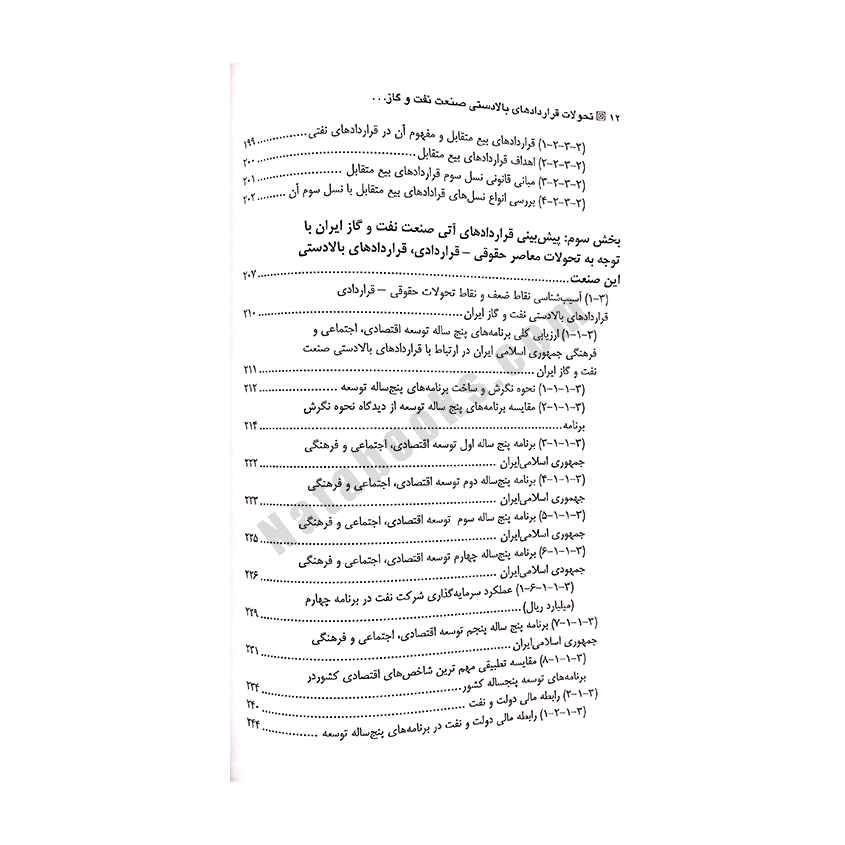 ۱۲ تحولات قراردادهای بالادستی صنعت نفت و گاز...
(۲-۳-۲-۱) قراردادهای بیع متقابل و مفهوم آن در قراردادهای نفتی ............... ۱۹۹
(۲-۳-۲-۲) اهداف قراردادهای بیع متقابل ............... ۲۰۰
(۲-۳-۲-۳) مبانی قانونی نسل سوم قراردادهای بیع متقابل ............... ۲۰۱
(۲-۳-۲-۴) بررسی انواع نسل‌های قرادادهای بیع متقابل با نسل سوم آن ......... ۲۰۲
بخش سوم: پیش‌بینی قراردادهای آتی صنعت نفت و گاز ایران با
توجه به تحولات معاصر حقوقی – قراردادی، قراردادهای بالادستی
این صنعت ............... ۲۰۷
(۳-۱) آسیب‌شناسی نقاط ضعف و نقاط تحولات حقوقی – قراردادی
قراردادهای بالادستی نفت و گاز ایران ............... ۲۱۰
(۳-۱-۱) ارزیابی کلی برنامه‌های پنج ساله توسعه اقتصادی، اجتماعی و
فرهنگی جمهوری اسلامی ایران در ارتباط با قراردادهای بالادستی صنعت
نفت و گاز ایران ............... ۲۱۱
(۳-۱-۱-۱) نحوه نگرش و ساخت برنامه‌های پنج‌ساله توسعه ............... ۲۱۲
(۳-۱-۱-۲) مقایسه برنامه‌های پنج ساله توسعه از دیدگاه نحوه نگرش
برنامه ............... ۲۱۴
(۳-۱-۱-۳) برنامه پنج ساله اول توسعه اقتصادی، اجتماعی و فرهنگی
جمهوری اسلامی‌ایران ............... ۲۲۲
(۳-۱-۱-۴) برنامه پنج‌ساله دوم توسعه اقتصادی، اجتماعی و فرهنگی
جهموری اسلامی‌ایران ............... ۲۲۳
(۳-۱-۱-۵) برنامه پنج ساله سوم توسعه اقتصادی، اجتماعی و فرهنگی
جمهوری اسلامی‌ایران ............... ۲۲۵
(۳-۱-۱-۶) برنامه پنج‌ساله چهارم توسعه اقتصادی، اجتماعی و فرهنگی
جمهودی اسلامی‌ایران ............... ۲۲۶
(۳-۱-۱-۶-۱) عملکرد سرمایه‌گذاری شرکت نفت در برنامه چهارم
(میلیارد ریال) ............... ۲۲۹
(۳-۱-۱-۷) برنامه پنج ساله پنجم توسعه اقتصادی، اجتماعی و فرهنگی
جمهوری اسلامی‌ایران ............... ۲۳۱
(۳-۱-۱-۸) مقایسه تطبیقی مهم ترین شاخص‌های اقتصادی کشوردر
برنامه‌های توسعه پنجساله کشور ............... ۲۳۴
(۳-۱-۲) رابطه مالی دولت و نفت ............... ۲۴۰
(۳-۱-۲-۱) رابطه مالی دولت و نفت در برنامه‌های پنج‌ساله توسعه ............... ۲۴۴
Narabooks.com